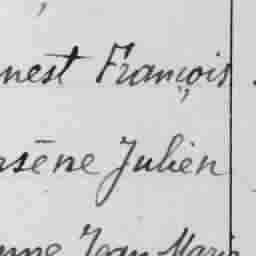 nest François
rsène Julien
nne Jean Marie